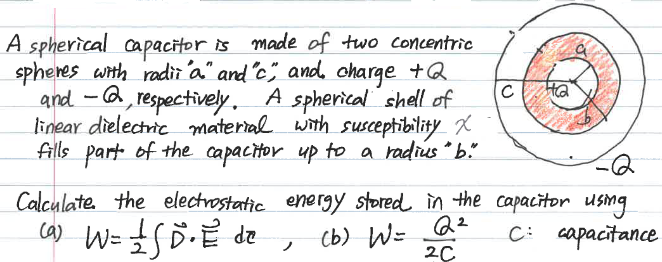 A spherical capacitor is made of two concentric
spheres with radii "a" and "c", and charge +Q
and -Q, respectively. A spherical shell of
linear dielectric material with susceptibility χ
fills part of the capacitor up to a radius "b."
a
c
+Q
b
-Q
Calculate the electrostatic energy stored in the capacitor using
(a) W = 1/2 ∫ D⃗·E⃗ dτ , (b) W = Q²/2C C: capacitance